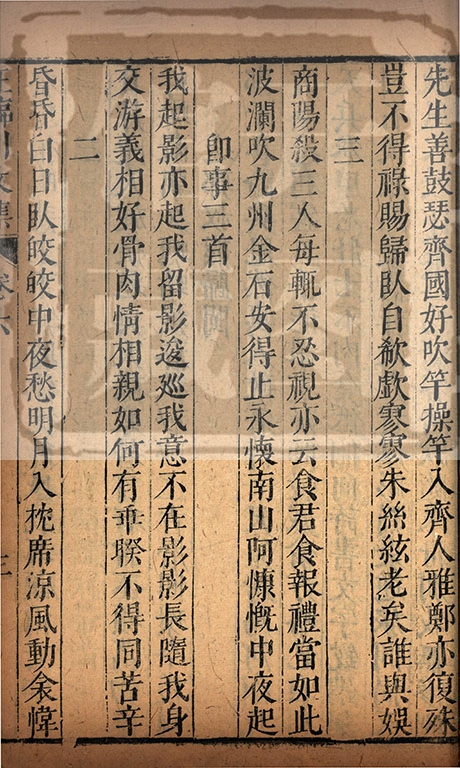 先生善鼓瑟齊國好吹竽操竽入齊人雅鄭亦復殊
豈不得祿賜歸臥自欷歔寥寥朱絲絃老矣誰與娛
三
商陽殺三人每輒不忍視亦云食君食報禮當如此
波瀾吹九州金石安得止永懷南山阿慷慨中夜起
卽事三首
我起影亦起我留影逡廵我意不在影影長隨我身
交游義相好骨肉情相親如何有乖睽不得同苦辛
二
昏昏白日臥皎皎中夜愁明月入枕席涼風動衾幃